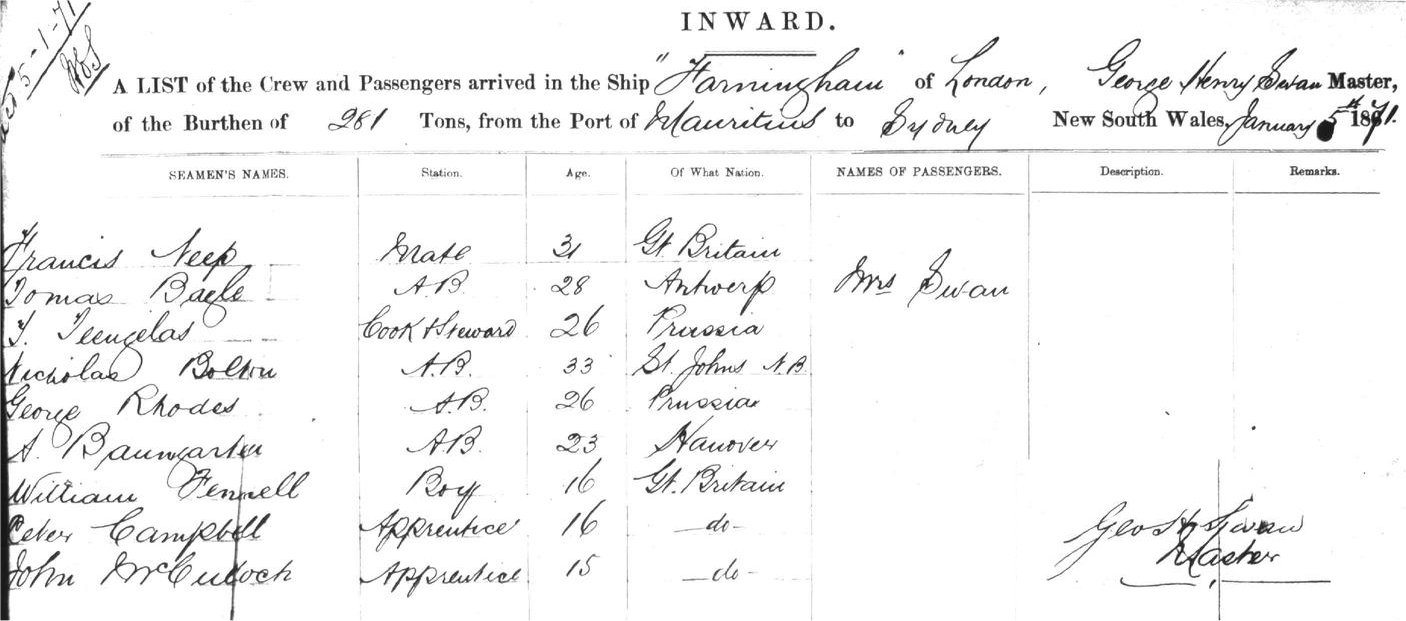 INWARD.
5-1-71
A LIST of the Crew and Passengers arrived in the Ship "Farningham" of London, George Henry Swan Master,
of the Burthen of 281 Tons, from the Port of Mauritius to Sydney New South Wales, January 5th 1871.
SEAMEN'S NAMES. Station. Age. Of What Nation. NAMES OF PASSENGERS. Description. Remarks.
Francis Neep Mate 31 Gt. Britain
Tomas Bagle A.B. 28 Antwerp Mrs Swan
Cook & Steward 26 Prussia
Nicholas Bolton A.B. 33 St. Johns N.B.
George Rhodes A.B. 26 Prussia
A. Baumgarten A.B. 23 Hanover
William Fennell Boy 16 Gt. Britain
Peter Campbell Apprentice 16 -do-
Geo H Swan
Master
John McCulloch Apprentice 15 -do-